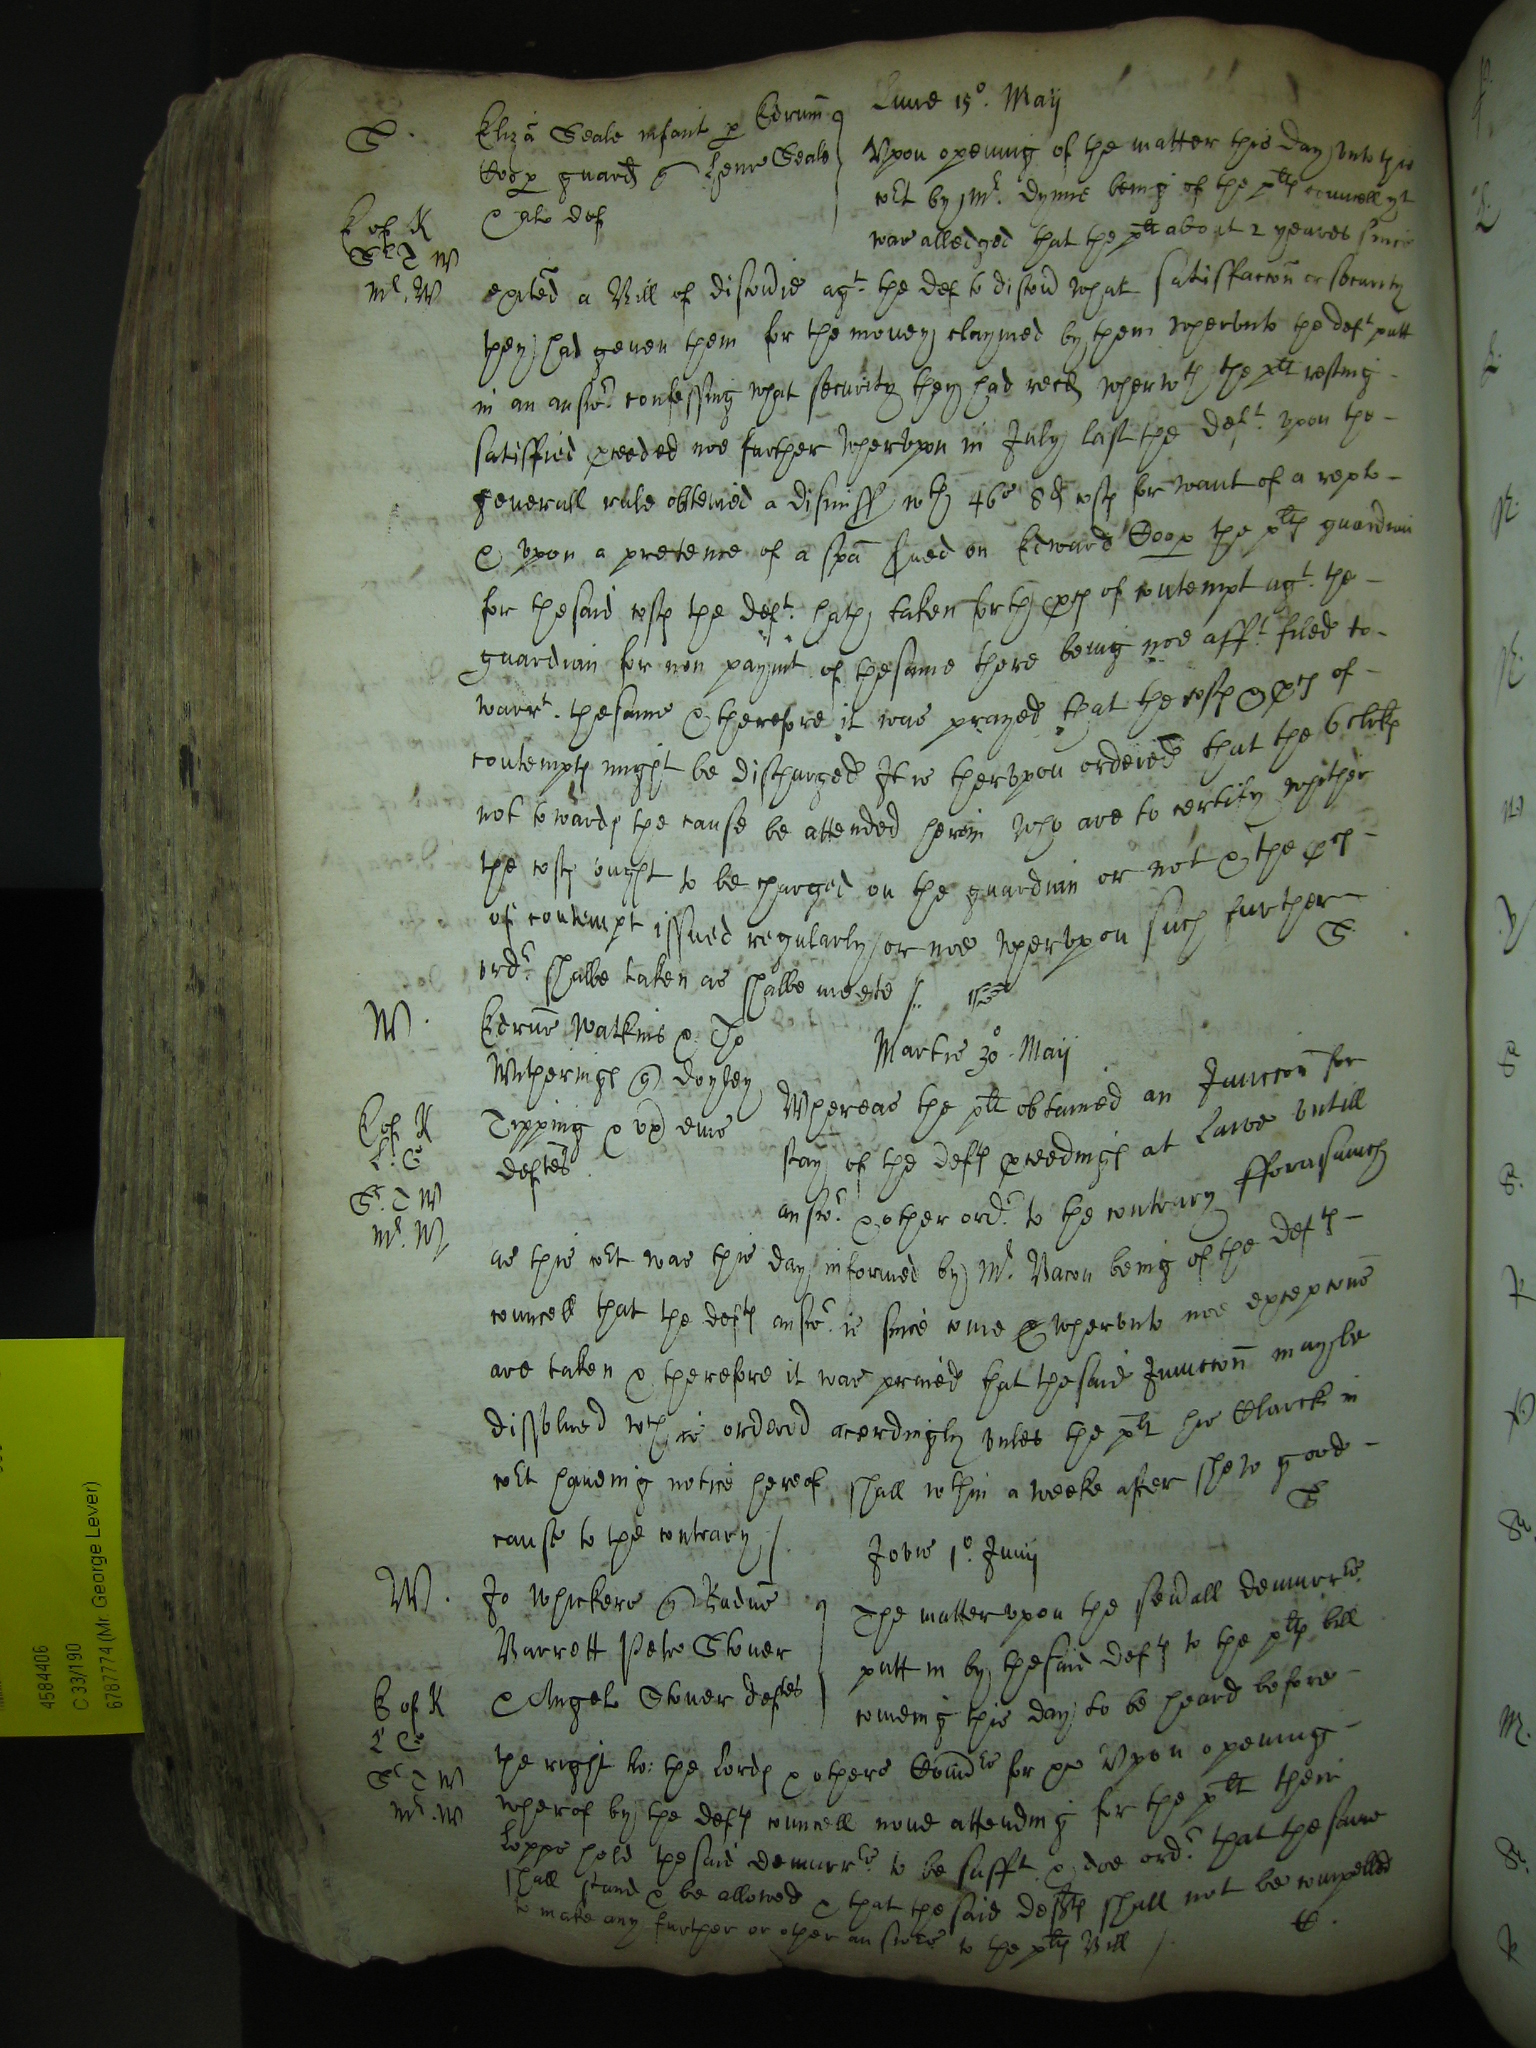 Lune 15o. Maij
S.
Eliza Seale infant p Edrum
Coop guard & Henr Seale
& als def
Upon opening of the matter this day unto this
Cort by Mr. Dynne being of the plts councell yt
was alledged that the plt about 2 yeares since
E of K
Sr T W
Mr. W
exited a Bill of discovie agt. the def to discov what satisffaccon or security
they had geven them for the money claymed by them wherunto the deft putt
in an answr. confessing what security they had recd wherwth the plt resting
satisffied pceeded noe further wherupon in July last the deft. upon the
generall rule obteined a dismiss wth 46s 8d costs for want of a replc
& upon a pretence of a spa sued on Edward Coop the plts guardian
for thesaid costs the deft. hath taken forth pces of contempt agt. the
guardian for non paymt of thesame there being noe afft. filed to
warrt. thesame & therefore it was prayed that the costs & pces of
contempts might be discharged It is therupon ordered that the 6 clerks
not towards the cause be attended herein who are to certify whither
the costs ought to be charged on the guardian or not & the pces
of contempt issued regularly or noe wherupon such further
ordr. shalbe taken as shalbe meete
S
W.
Edrus Watkins & Jo
Witherings & doyley
Tipping & ux eius
deftes
Martis 30o. Maij
Whereas the plt obtained an Iunccon for
stay of the defts pceedings at Lawe untill
answr. & other ordr. to the contrary fforasmuch
E of K
L. C
Sr. T W
Mr. W
as this cort was this day informed by Mr. Bacon being of the defts
councell that the defts answr. is since come & wherunto noe excepcons
are taken & therefore it was praied that thesaid Iunccon may be
dissolved wch is ordered acordingly unles the plt his Clarck in
cort haveing notice hereof shall wthin a weeke after shew good
cause to the contrary
S
Jovis 1o. Junij
W.
Jo Whickers & Radus
Barrett Petr Stover
& Angel Stover deftes
The matter upon the sevall demurrrs.
putt in by thesaid defts to the plts bill
comeing this day to be heard before
E of K
L C
Sr T W
Mr. W
the right ho: the Lords & others Comdrs for &c Upon opening
wherof by the defts councell none attending for the plt their
Lopps hold thesaid demurrrs to be sufft & doe ordr. that thesame
shall stand & be allowed & that thesaid defts shall not be compelled
to make any further or other answere to the plts Bill
C.
4584406
C 33/190
6787774 (Mr. George Lever)